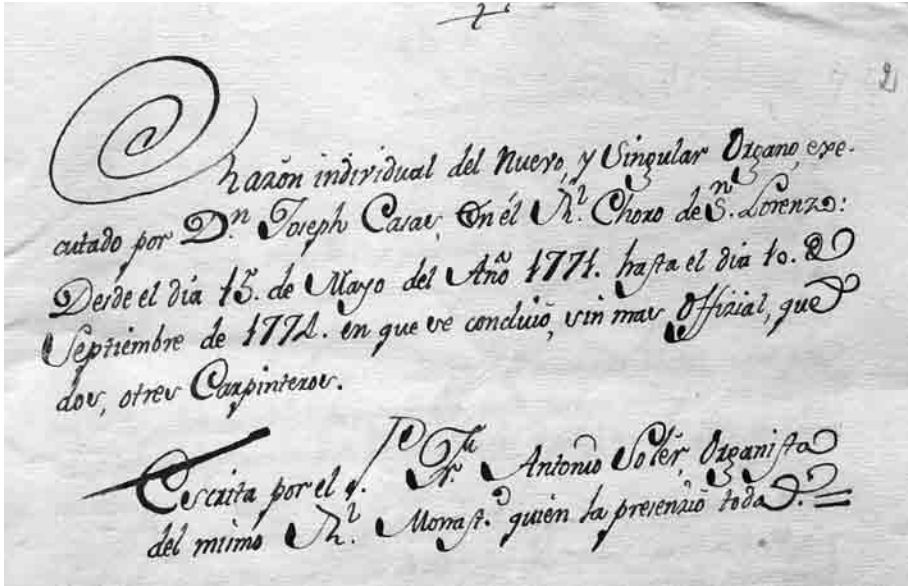 2
Razon individual del Nuevo, y Singular Organo, exe-
cutado por Dn. Joseph Casas, En él Rl. Choro de Sn. Lorenzo:
Desde el dia 15. de Mayo del Año 1771. hasta el dia 10. D
Septiembre de 1772. en que se concluiô, sin mas Offizial, que
dos, otres Carpinteros.
Escrita por el P. Fr. Antonio Soler, Organista
del mismo Rl. Monast.o quien la presenziô toda.=